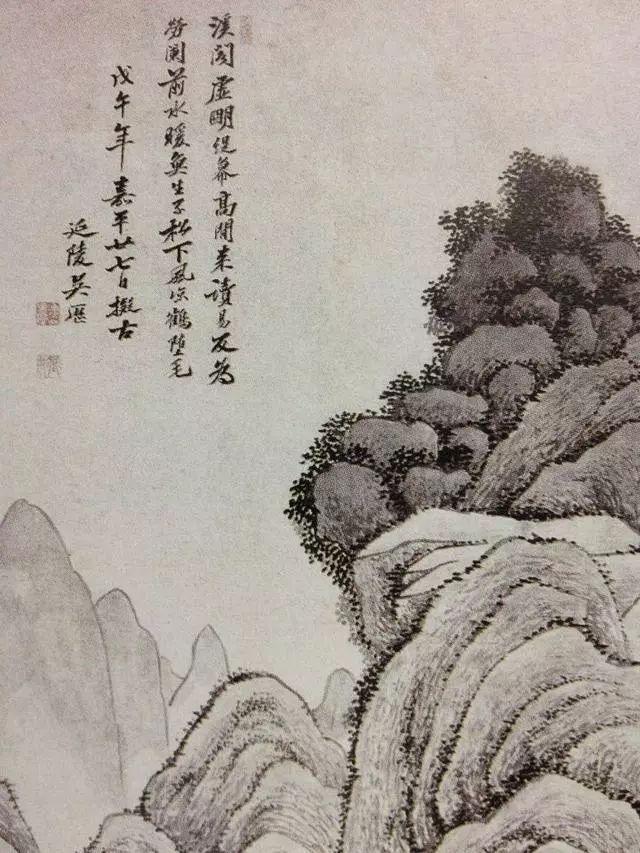 溪阁虚明偍幕高閒来读易反为
劳阑前水暖鱼生子松下风凉鹤堕毛
戊午年嘉平廿七日拟古
延陵吴歷